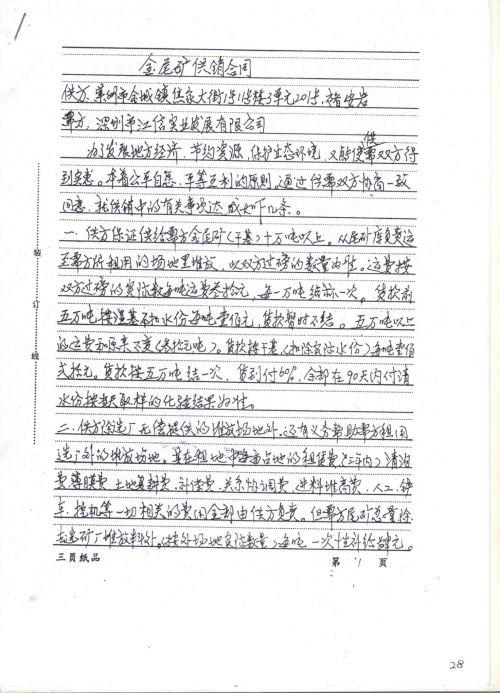 金尾矿供销合同
供方：莱州市金城镇焦家大街1号1号楼3单元201号，褚安岩
需方，深圳市江信实业发展有限公司
为了发展地方经济，节约资源，保护生态环境，又能使供需双方得
到实惠。本着公平自愿，平等互利的原则，通过供需双方协商一致
同意，就供销中的有关事项达成如下几条。
一、供方保证供给需方金尾矿(干基)十万吨以上。从尾矿库负责运
至需方所租用的场地里堆放，以双方过磅的数量为准。运费按
双方过磅的实际数每吨运费叁拾元，每一万吨结算一次。货款前
五万吨按湿基不扣水份每吨壹佰元，货款暂时不结。五万吨以上
的运费和原来不变(叁拾元吨)。货款按干基(扣除实际水份)每吨壹佰
贰拾元。货款按五万吨结一次，货到付60%，余部在90天内付清
水份按当天取样的化验结果为准。
二、供方除选厂无偿提供的堆放场地外，还有义务帮助需方租用
选厂外的堆放场地。其在租地中每亩占地的租赁费(三年内)青苗
费薄膜费，土地复耕费，补偿费，关系协调费，进料堆高费，人工，铲
车，挖机等一切相关的费用全部由供方负责。但需方尾矿总量除
去选矿厂堆放料外。(按外场地实际数量)每吨一次性补给肆元。
三员纸品
第 1 页
装
订
线
28